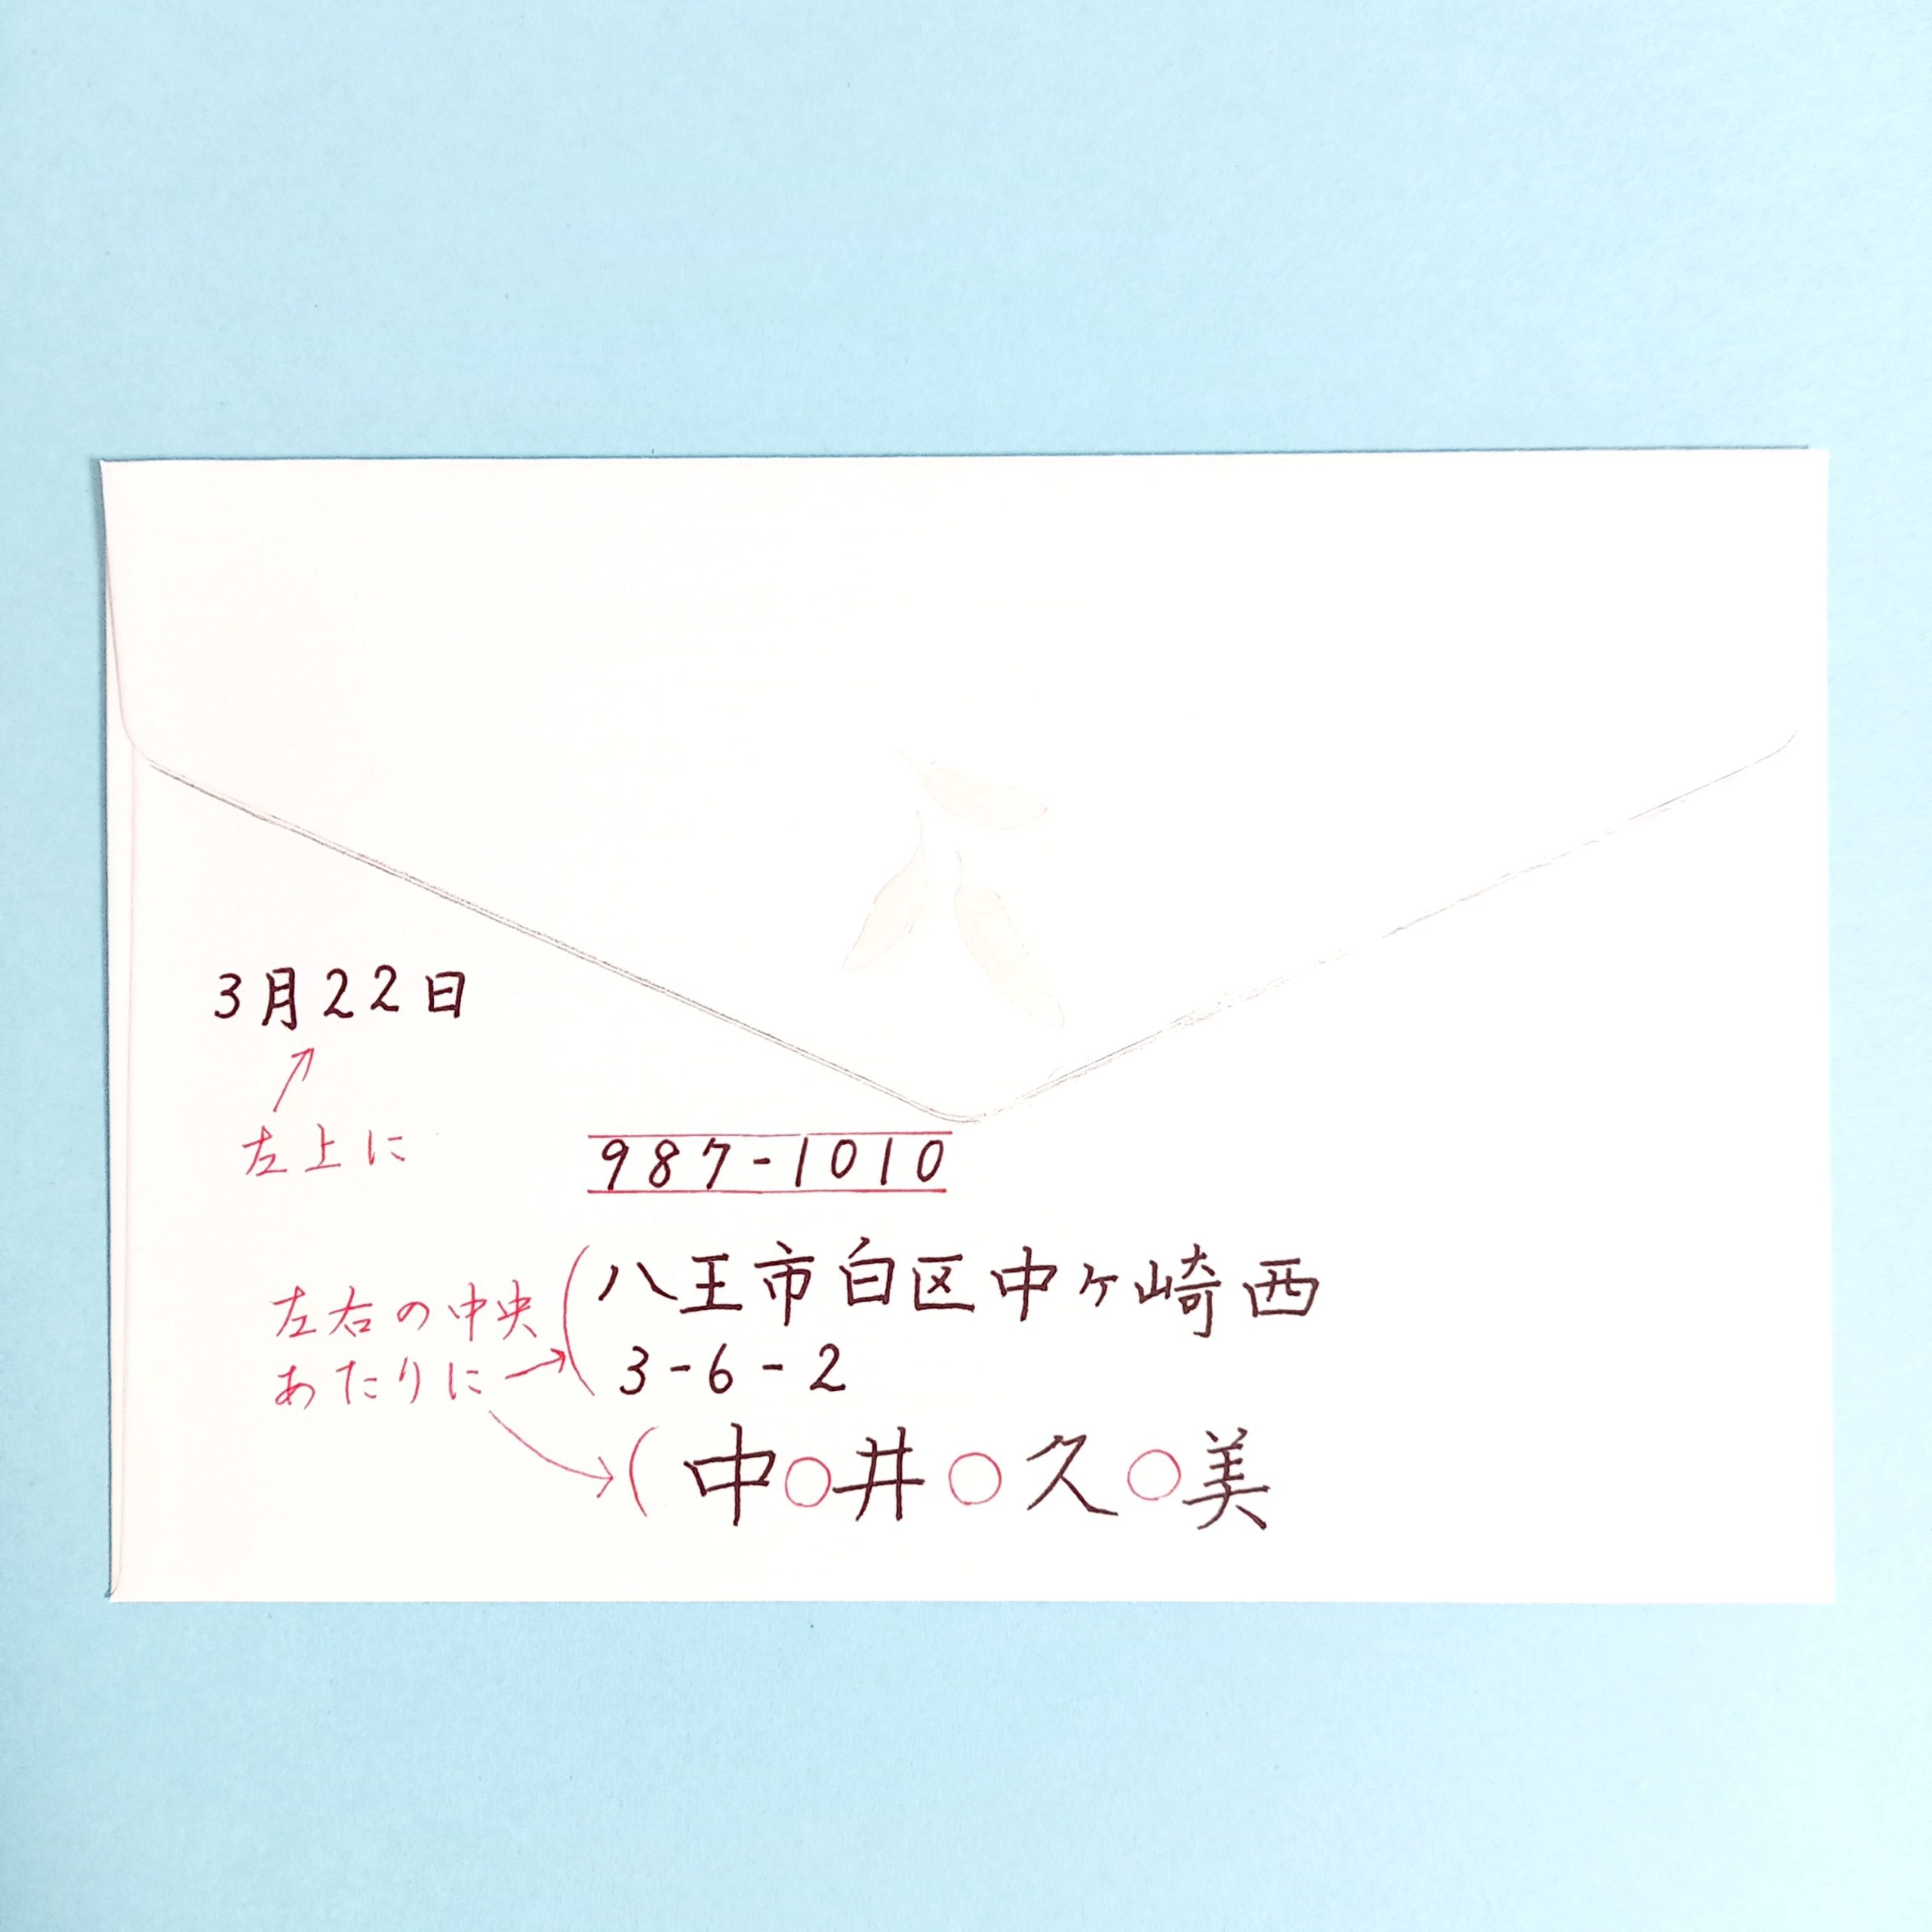 3月22日
左上に
987-1010
八王市白区中ヶ崎西
3-6-2
左右の中央
あたりに
中○井○久○美